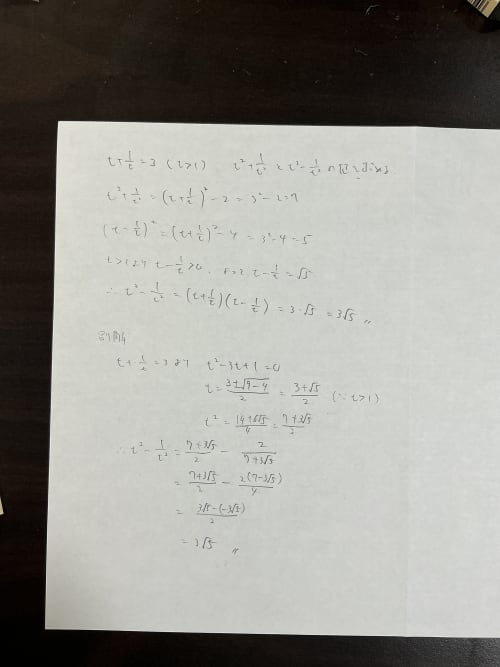 t+1/t=3 (t>1) t²+1/t² と t²-1/t² の値を求める
t²+1/t² = (t+1/t)²-2 = 3²-2=7
(t-1/t)² = (t+1/t)²-4 = 3²-4=5
t>1より t-1/t>0. よって t-1/t=√5
∴ t²-1/t² = (t+1/t)(t-1/t) = 3·√5 = 3√5 〃
別解
t+1/t=3より t²-3t+1=0
t=(3±√(9-4))/2 = (3+√5)/2 (∵ t>1)
t² = (14+6√5)/4 = (7+3√5)/2
∴ t²-1/t² = (7+3√5)/2 - 2/(7+3√5)
= (7+3√5)/2 - 2(7-3√5)/4
= (3√5-(-3√5))/2
= 3√5 〃